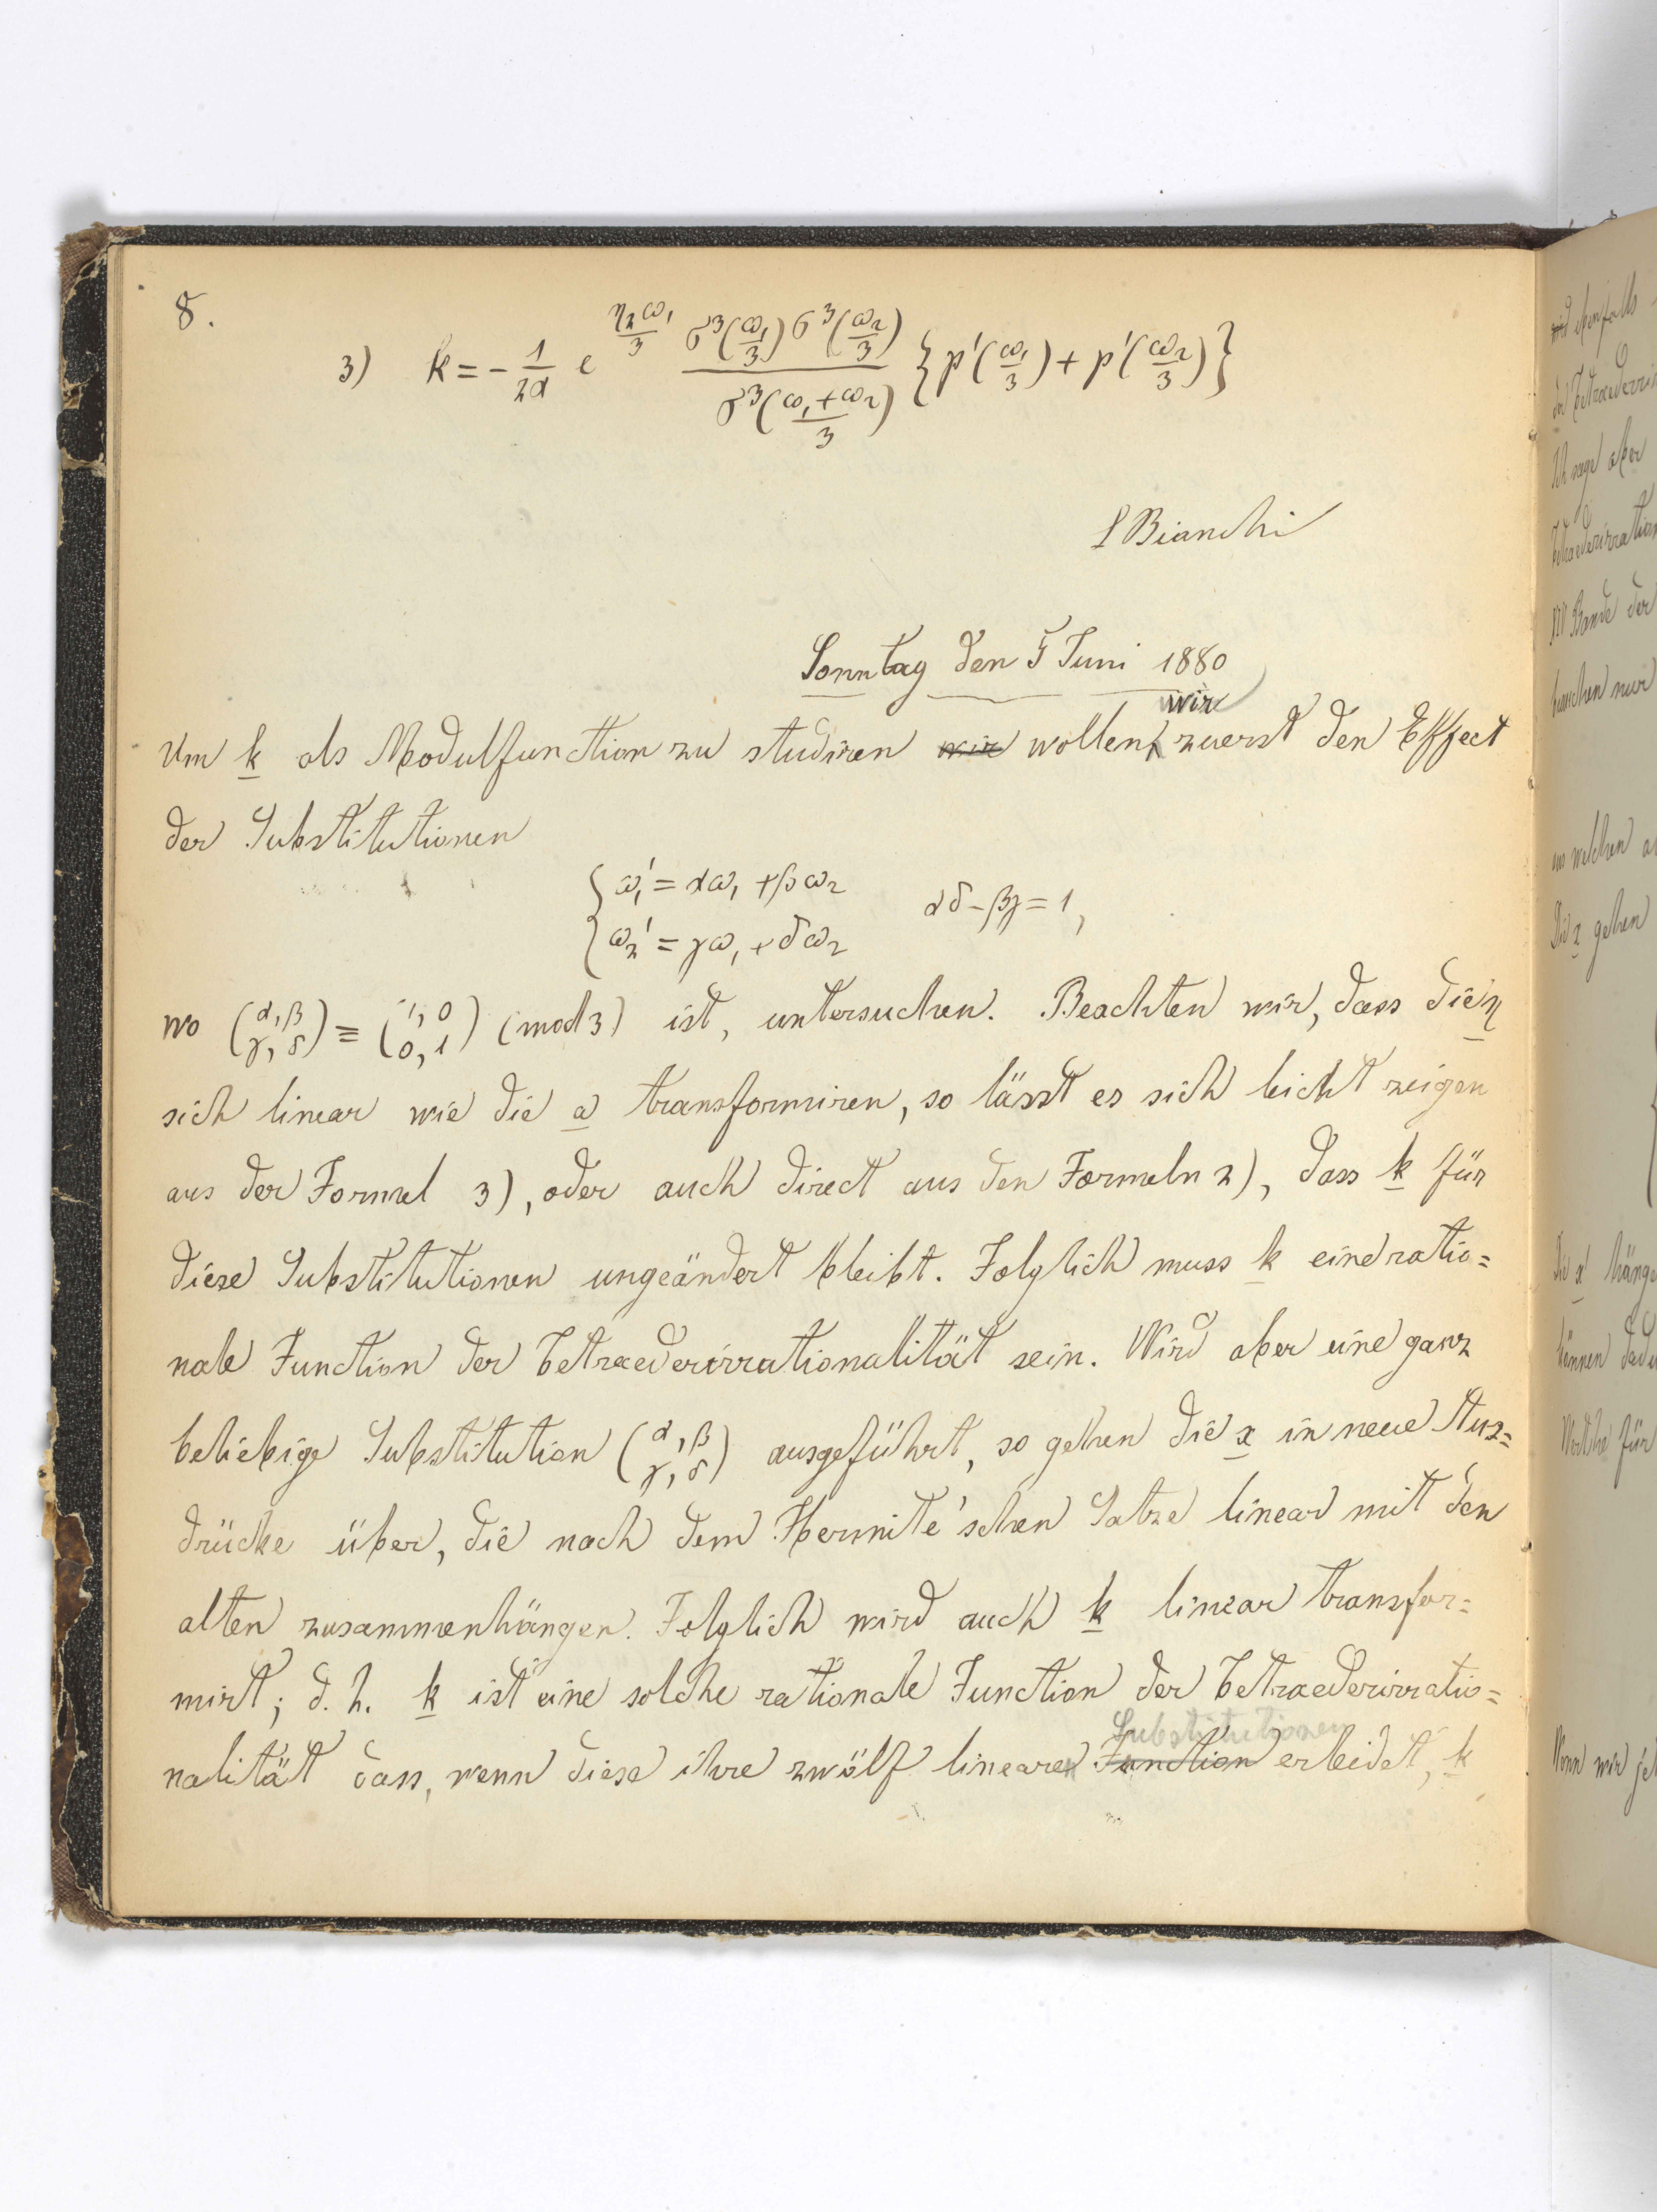 8.
3) k = - 1/2α e^{η₂ω₁/3} σ³(ω₁/3) σ³(ω₂/3) / σ³(ω₁+ω₂/3) {p'(ω₁/3) + p'(ω₂/3)}
L Bianchi
Sonntag den 5 Juni 1880
wir
Um k als Modulfunction zu studiren wir wollen zuerst den Effect
der Substitutionen
{ ω₁' = αω₁ + βω₂
αδ - βγ = 1,
{ ω₂' = γω₁ + δω₂
wo (α, β / γ, δ) ≡ (1, 0 / 0, 1) (mod 3) ist, untersuchen. Beachten wir, dass die η
sich linear wie die ω transformiren, so lässt es sich leicht zeigen
aus der Formel 3), oder auch direct aus den Formeln 2), dass k für
diese Substitutionen ungeändert bleibt. Folglich muss k eine ratio=
nale Function der Tetraederirrationalität sein. Wird aber eine ganz
beliebige Substitution (α, β / γ, δ) ausgeführt, so gehen die x in neue Aus=
drücke über, die nach dem Hermite'schen Satze linear mit den
alten zusammenhängen. Folglich wird auch k linear transfor=
mirt; d. h. k ist eine solche rationale Function der Tetraederirratio=
Substitutionen
nalität dass, wenn diese ihre zwölf linearen Function erleidet, k
ebenfalls
Ich sage aber
Bande der
aus welchen
Die x gehen
Die x hänge
können
für
Wenn wir